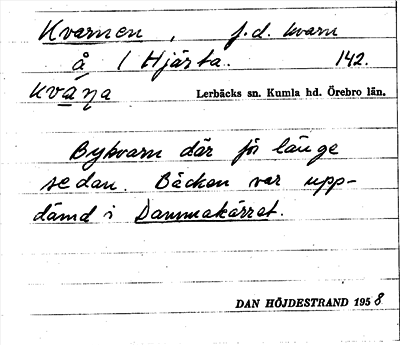 Kvarnen, f.d. kvarn
å 1 Hjärta. 142.
kvạ̄ṇa Lerbäcks sn. Kumla hd. Örebro län.
Bykvarn där för länge
sedan. Bäcken var upp-
dämd i Dammakärret.
DAN HÖJDESTRAND 1958